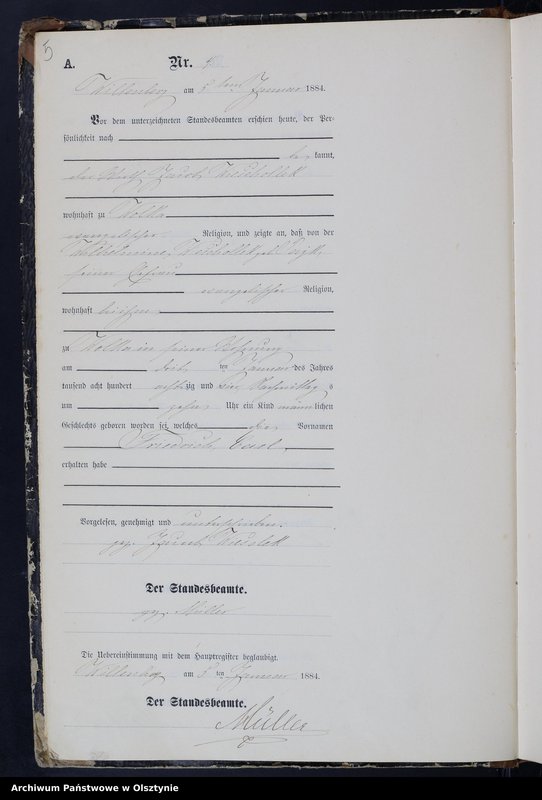 5
A. Nr.
Willenberg am 5ten Januar 1884.
Vor dem unterzeichneten Standesbeamten erschien heute, der Per-
sönlichkeit nach
be kannt,
Jacob
wohnhaft zu Wolka
evangelischer Religion, und zeigte an, daß von der
Wilhelmine, geb.
seiner Ehefrau
evangelischer Religion,
wohnhaft bei ihm
zu Wolka in seiner Wohnung
am ten Januar des Jahres
tausend acht hundert acht zig und vier Nachmittag s
um zehn Uhr ein Kind männ lichen
Geschlechts geboren worden sei, welches die Vornamen
Friedrich, Carl
erhalten habe
Vorgelesen, genehmigt und unterschrieben.
gez. Jacob
Der Standesbeamte.
gez. Müller
Die Uebereinstimmung mit dem Hauptregister beglaubigt.
Willenberg am 5 ten Januar 1884.
Der Standesbeamte.
Müller
Archiwum Państwowe w Olsztynie